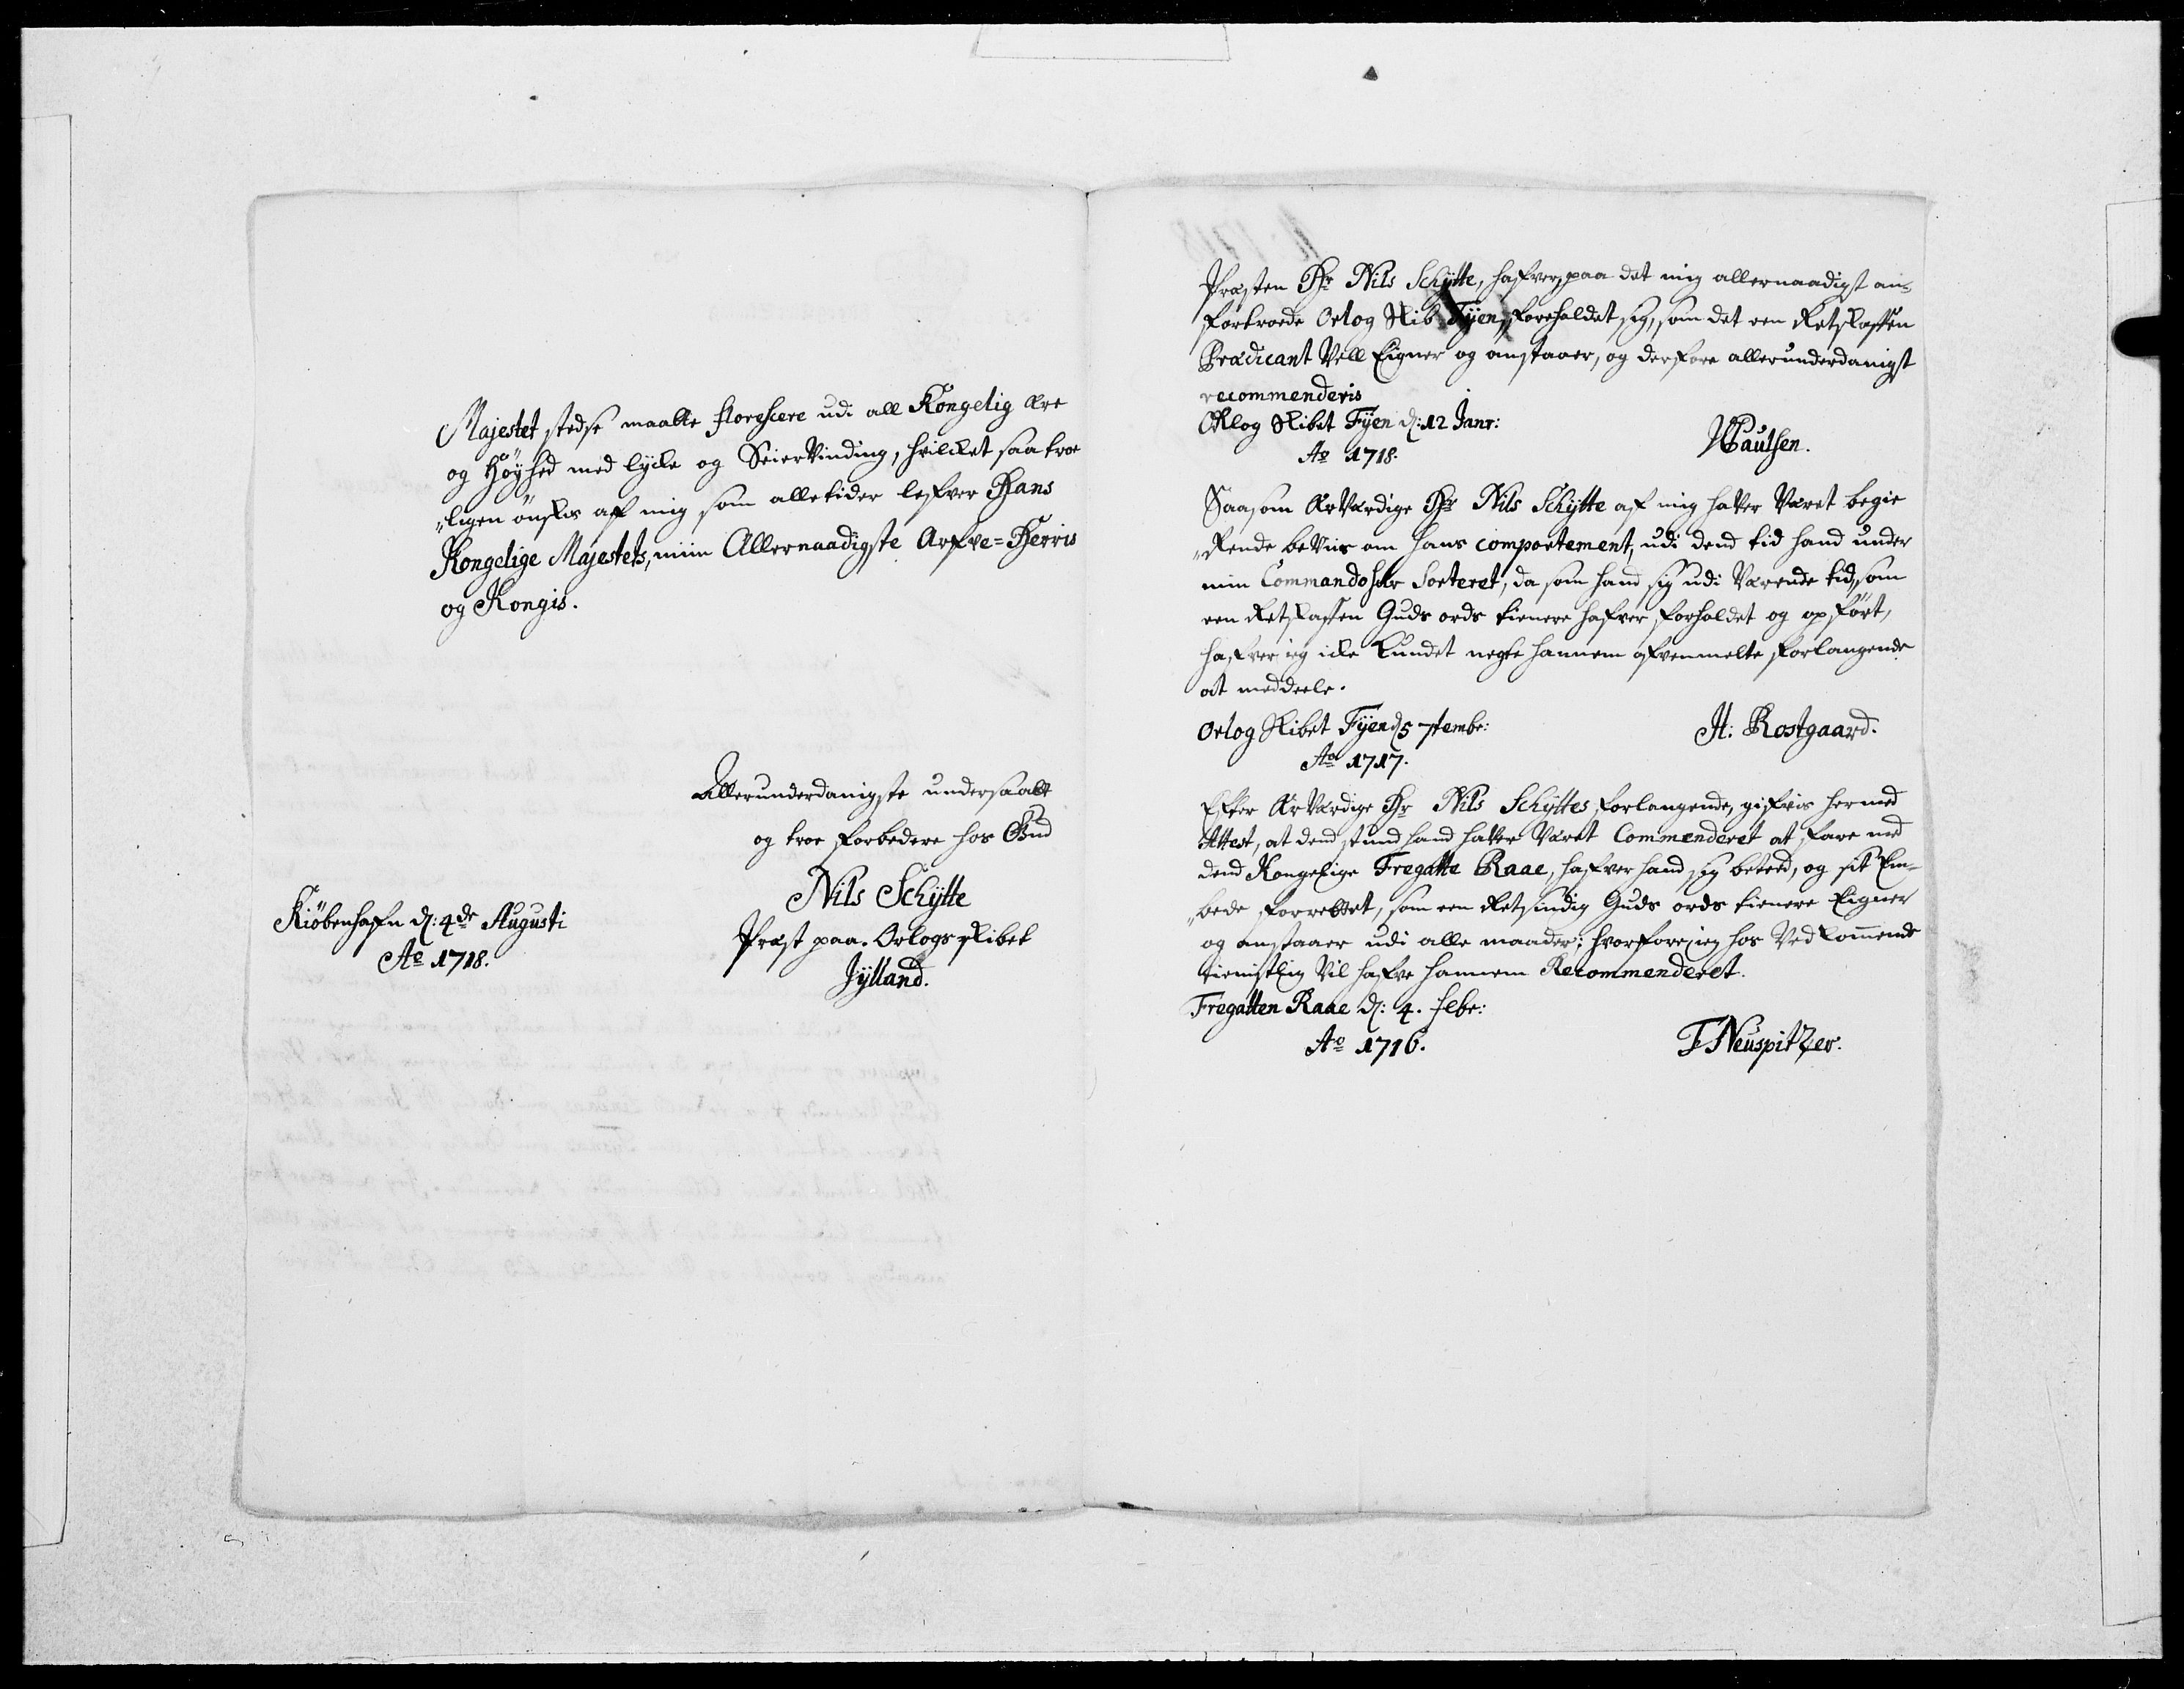 Majestet stedse maatte florescere udi all Kongelig ære
og Höyhed med lycke og SeierVinding, hvilcket saa troe
„ligen önskes aff mig som alletider lefver Hans
Kongelige Majestets, miin Allernaadigste Arfve=Herris
og Kongis.
Allerunderdanigste undersaatt
og troe forbedere hos Gud
Nils Schÿtte
Præst paa Orlogs skibet
Jÿlland.
Kiöbenhafn d: 4de Augusti
Ao 1718.
Præsten Hr Nils Schÿtte, hafver paa det mig allernaadigst an-
fortroede Orlog Skib Fÿen, forholdet sig, som det een Retskaffen
Prædicant Vell Eigner og anstaaer, og derfore allerunderdanigst
recommenderis
ORlog Skibet Fÿen d: 12 Janr:
Ao 1718.
Paulsen.
Saasom ærVærdige Hr Nils Schÿtte af mig hafver Været begie
„Rende beViis om hans comportement, udi dend tid hand under
min Commando har Sorteret, da som hand sig udi Værende tid, som
een Retskaffen Guds ords tienere hafver forholdet og opfört,
hafver ieg icke kundet negte hannem ofvenmelte forlangende
at meddeele.
Orlog Skibet Fÿen d 5 7tembr:
Ao 1717.
H: Rostgaard.
Efter ærVærdige Hr Nils Schÿttes forlangende, gifvis hermed
Attest, at dend stund hand hafver Været Commenderet at fare med
dend Kongelige Fregatte Raae, hafver hand sig beteed, og sit Em-
„bede forrettet, som een Retsindig Guds ords tienere Eigner
og anstaaer udi alle maader; hvorfore ieg hos Vedkommende
tienistlig Vil hafve hannem Recommenderet.
Fregatten Raae d: 4. febr:
Ao 1716.
F Neuspitzer.